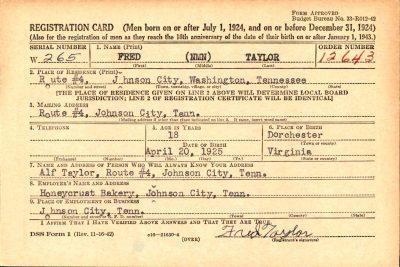 Form Approved
Budget Bureau No. 33-R012-42
REGISTRATION CARD (Men born on or after July 1, 1924, and on or before December 31, 1924)
(Also for the registration of men as they reach the 18th anniversary of the date of their birth on or after January 1, 1943.)
SERIAL NUMBER 1. NAME (Print) ORDER NUMBER
W. 265 FRED (NMN) TAYLOR 12643
(First) (Middle) (Last)
2. PLACE OF RESIDENCE (Print)
Route #4, J hnson City, Washington, Tennessee
(Number and street) (Town, township, village, or city) (County) (State)
[THE PLACE OF RESIDENCE GIVEN ON LINE 2 ABOVE WILL DETERMINE LOCAL BOARD
JURISDICTION; LINE 2 OF REGISTRATION CERTIFICATE WILL BE IDENTICAL]
3. MAILING ADDRESS
Route #4, Johnson City, Tenn.
[Mailing address if other than place indicated on line 2. If same, insert word same]
4. TELEPHONE 5. AGE IN YEARS 6. PLACE OF BIRTH
18 Dorchester
DATE OF BIRTH (Town or county)
April 20, 1925 Virginia
(Exchange) (Number) (Mo.) (Day) (Yr.) (State or country)
7. NAME AND ADDRESS OF PERSON WHO WILL ALWAYS KNOW YOUR ADDRESS
Alf Taylor, Route #4, Johnson City, Tenn.
8. EMPLOYER'S NAME AND ADDRESS
Honeycrust Bakery, Johnson City, Tenn.
9. PLACE OF EMPLOYMENT OR BUSINESS
J hnson City, Tenn.
(Number and street or R. F. D. number) (Town) (County) (State)
I AFFIRM THAT I HAVE VERIFIED ABOVE ANSWERS AND THAT THEY ARE TRUE.
DSS Form 1 (Rev. 11-16-42) 16-21630-4 Fred Taylor
(OVER) (Registrant's signature)